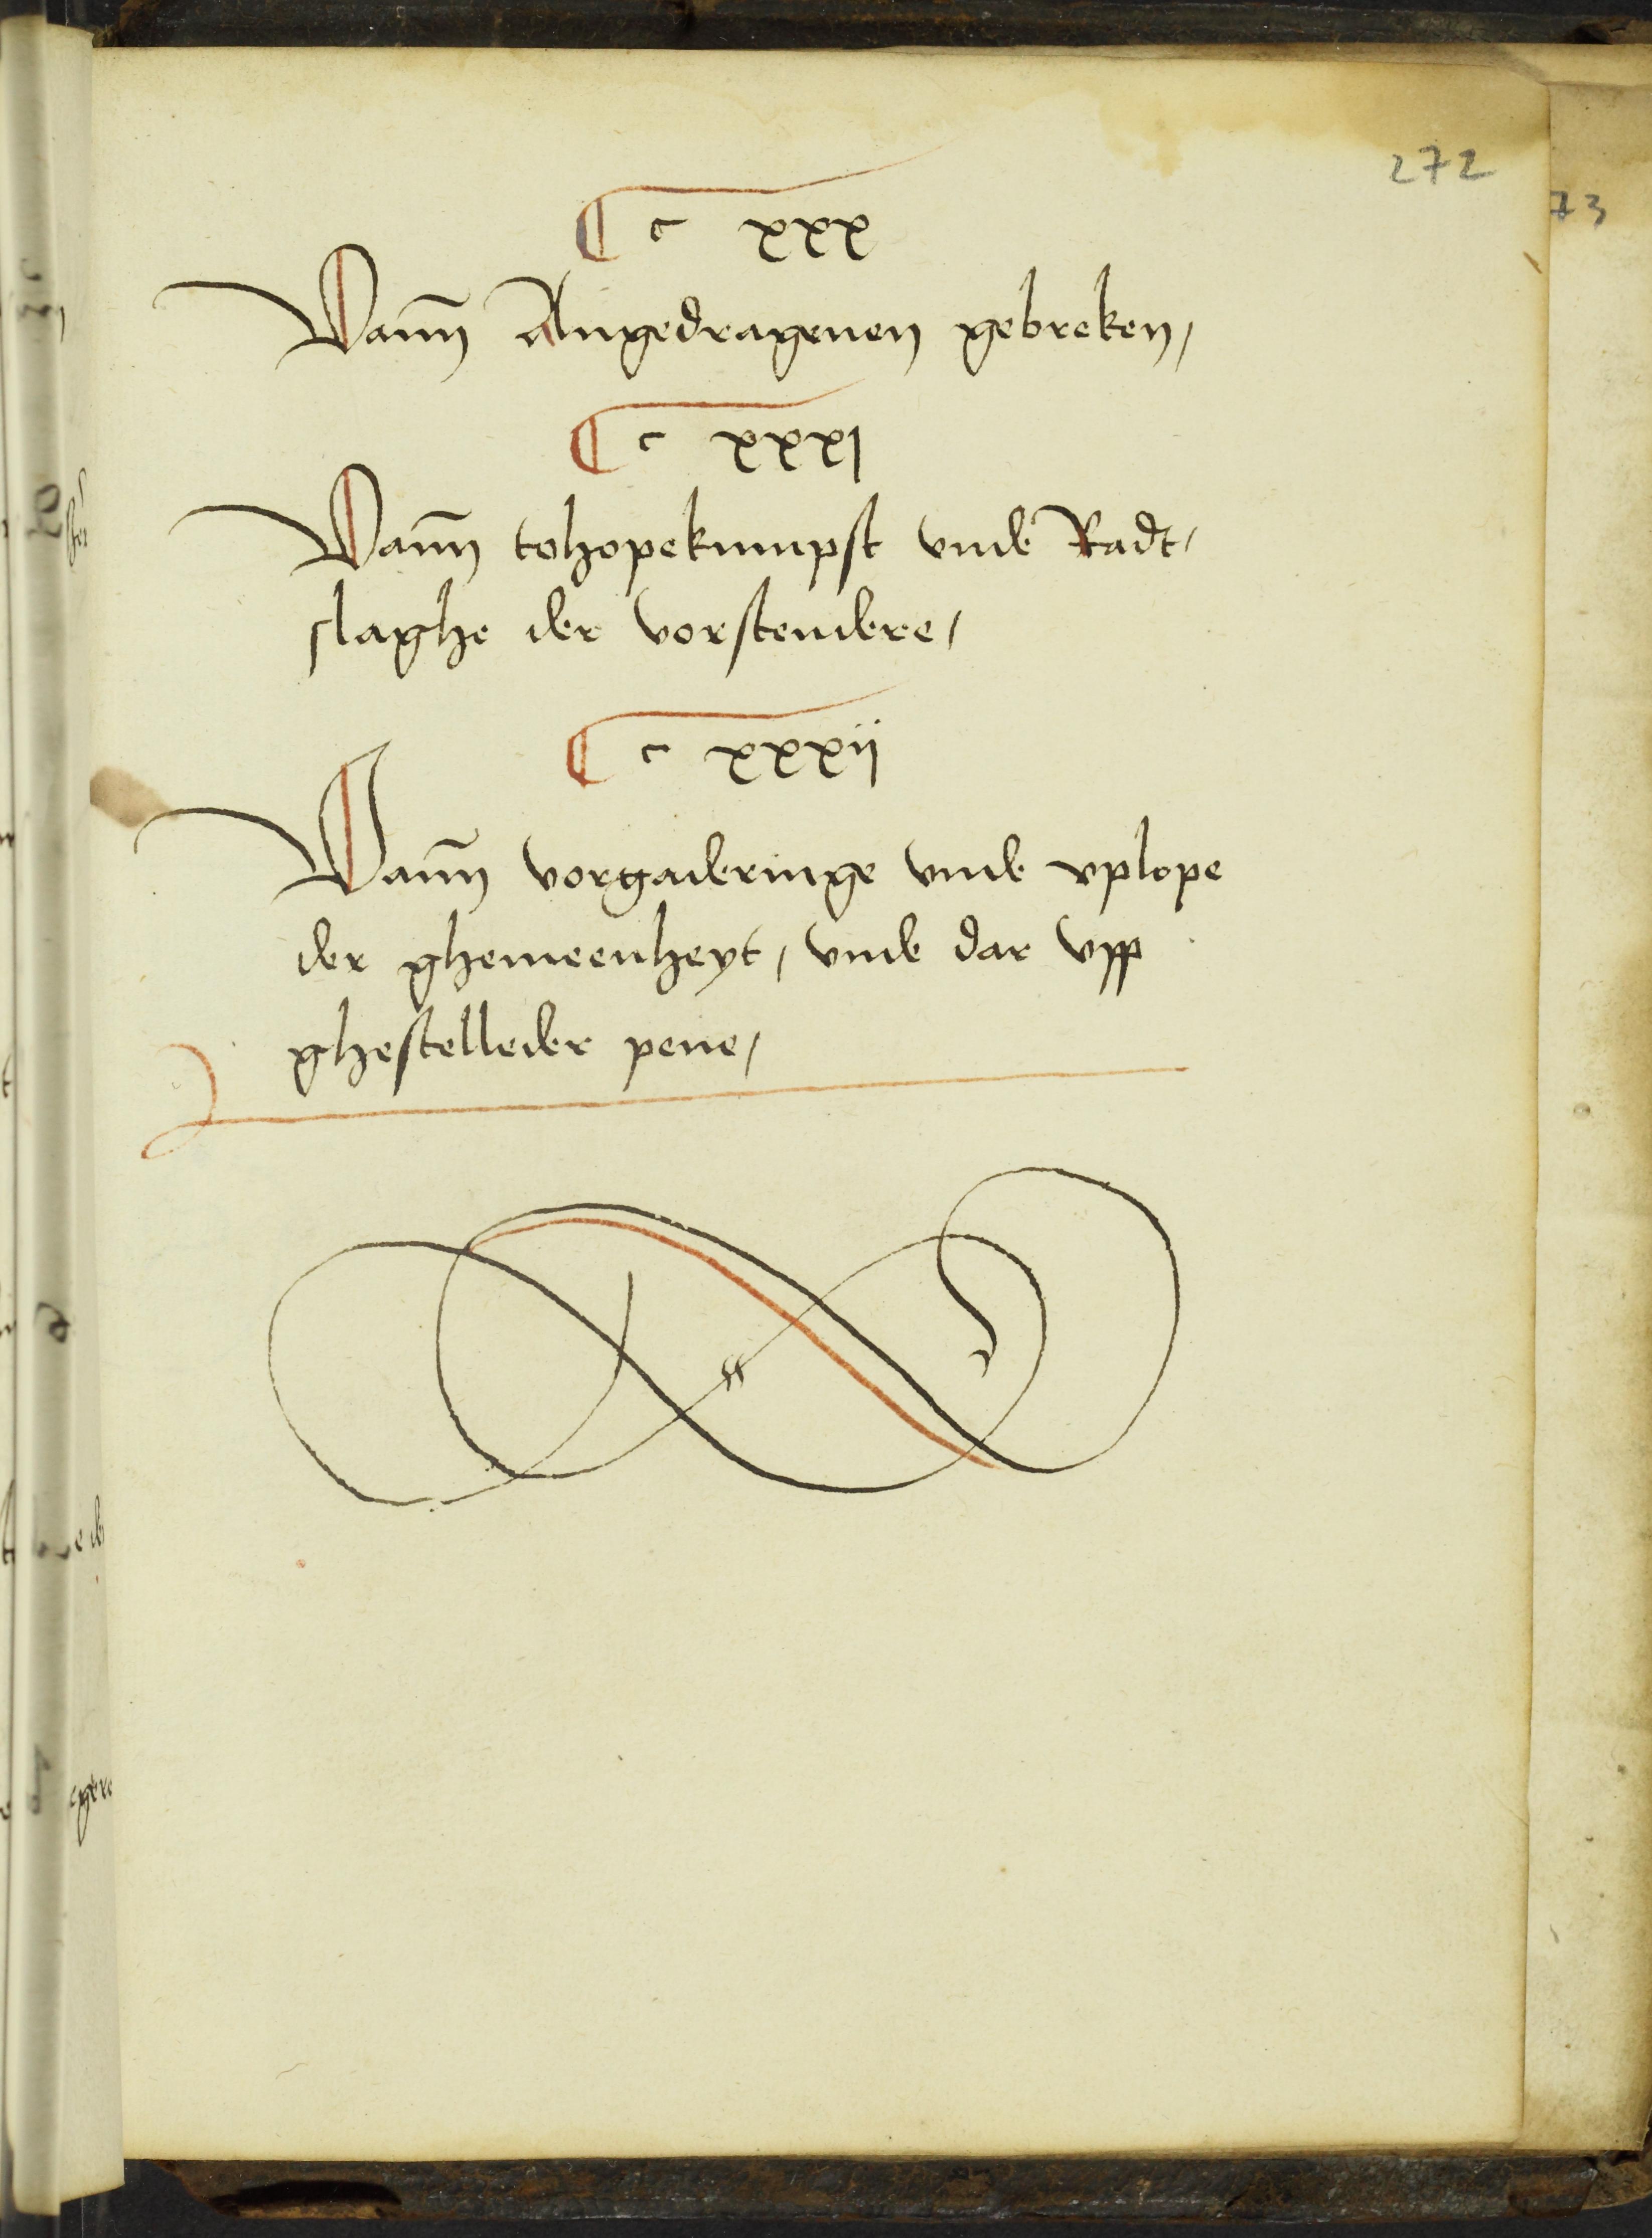 272
73
¶ c xxx
Vann̄ Angedragenen gebreken /
¶ c xxxj
Vann̄ tohopekumpst vnde Radt /
slaghe der vorstendere /
¶ c xxxij
Vann̄ vorgaderinge vnde vplope
der ghemeenheyt / vnde dar vpp
ghestelleder pene /